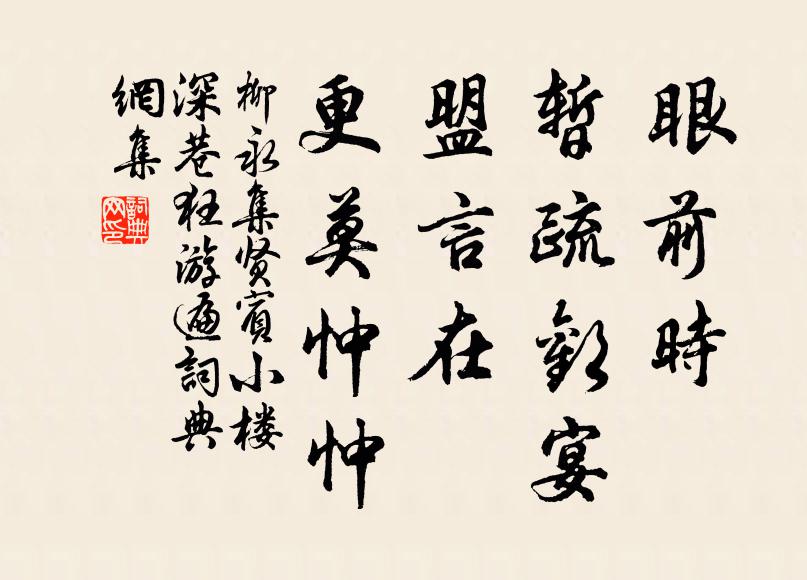 眼前時
暫疏歡宴
盟言在
更莫忡忡
柳永集贤賓小楼
深巷狂游遍詞典
網集
詞典
网印